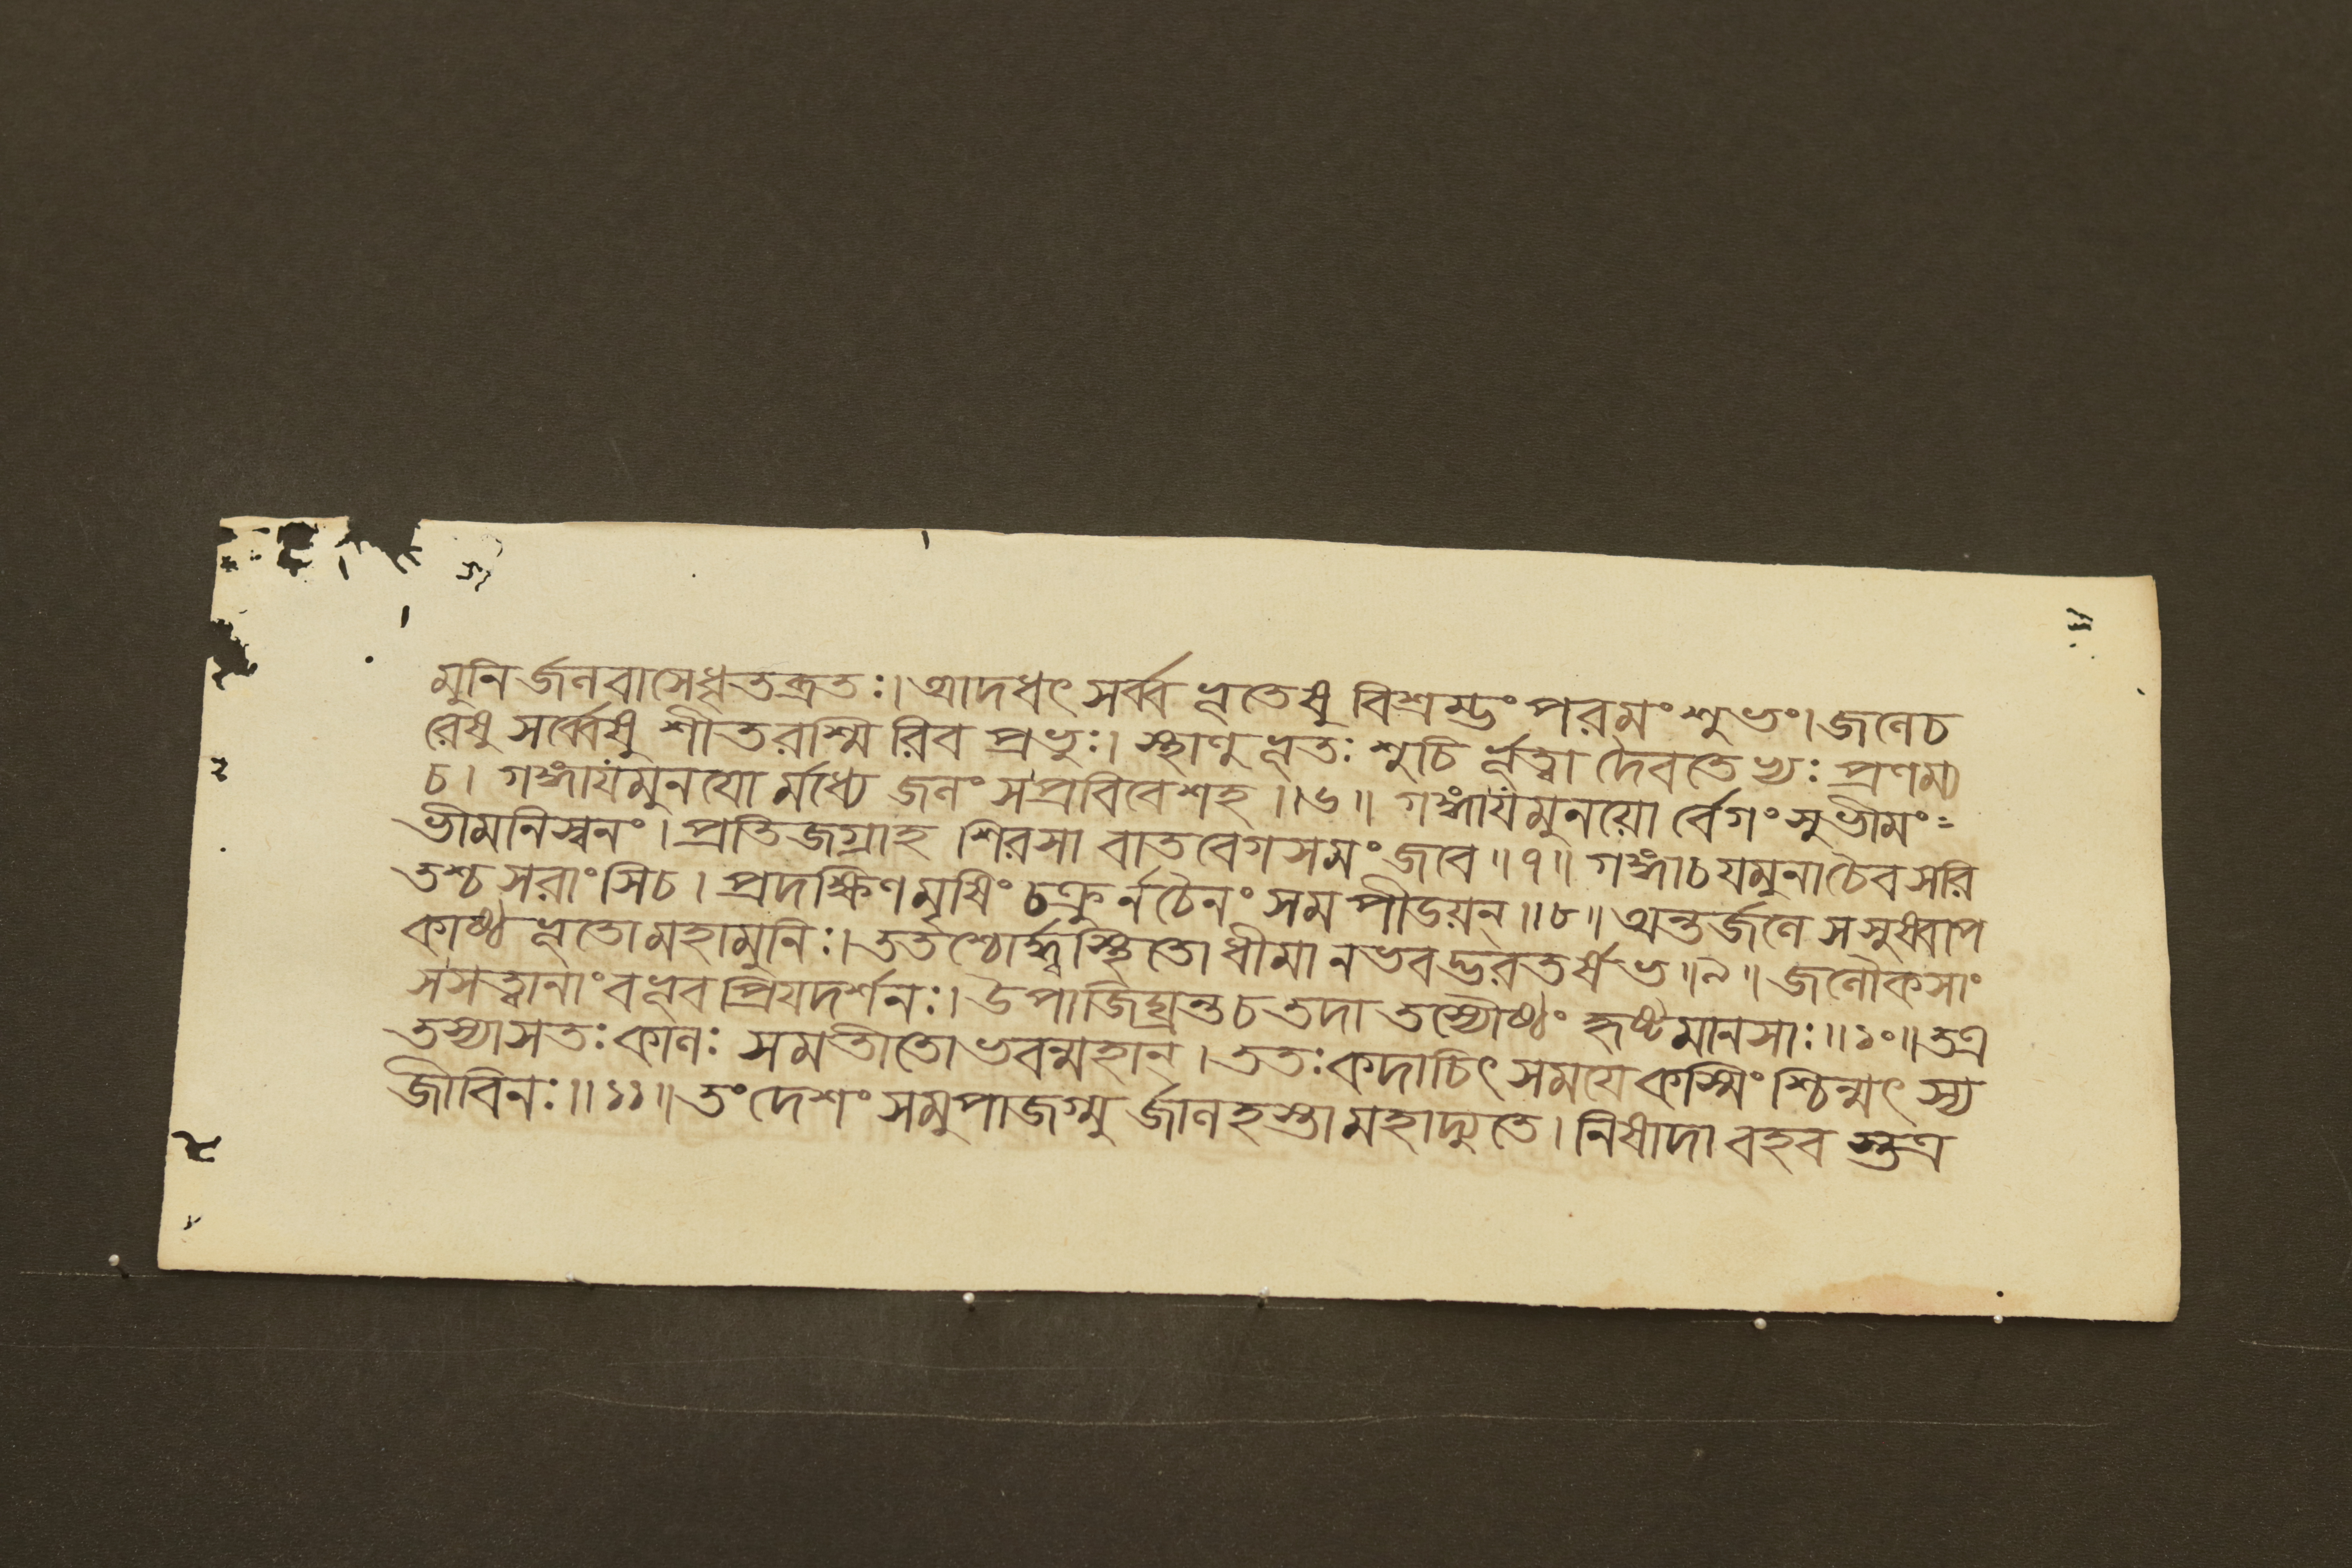 মুনির্জনবাসেধৃতব্রতঃ।আদধৎ সর্ব্ব ভূতেষু বিশ্রম্ভং পরমং শুভং।জলেচ
রেষু সর্ব্বেষু শীতরশ্মি রিব প্রভুঃ। স্থাণু ভূতঃ শুচি র্ভূত্বা দৈবতেভ্যঃ প্রণম্য
চ। গঙ্গাযমুনযো র্মধ্যে জলং সপ্রবিবেশহ ॥৬॥ গঙ্গাযমুনয়ো র্বেগং সুভীমং=
ভীমনিস্বনং। প্রতিজগ্রাহ শিরসা বাতবেগসমং জবে ॥৭॥ গঙ্গাচযমুনাচৈবসরি
তশ্চ সরাংসিচ। প্রদক্ষিণমৃষিং চক্রুর্নচৈনং সম পীডয়ন্ ॥৮॥ অন্তর্জলে সসুষ্বাপ
কাষ্ঠ ভূতো মহামুনিঃ। ততশ্চোর্দ্ধ্বস্থিতো ধীমা নভবদ্ভরতর্ষভ ॥৯॥ জলৌকসাং
সসত্বানাং বভূব প্রিযদর্শনঃ। উপাজিঘ্রন্ত চ তদা তস্যৌষ্ঠং হৃষ্টমানসাঃ ॥১০॥তত্র
তস্যাসতঃ কালঃ সমতীতো ভবন্মহান্। ততঃ কদাচিৎ সময়ে কস্মিংশ্চিন্মৎস্য
জীবিনঃ ॥১১॥ তং দেশং সমুপাজগ্মু র্জালহস্তা মহাদ্যুতে। নিষাদা বহব স্তত্র